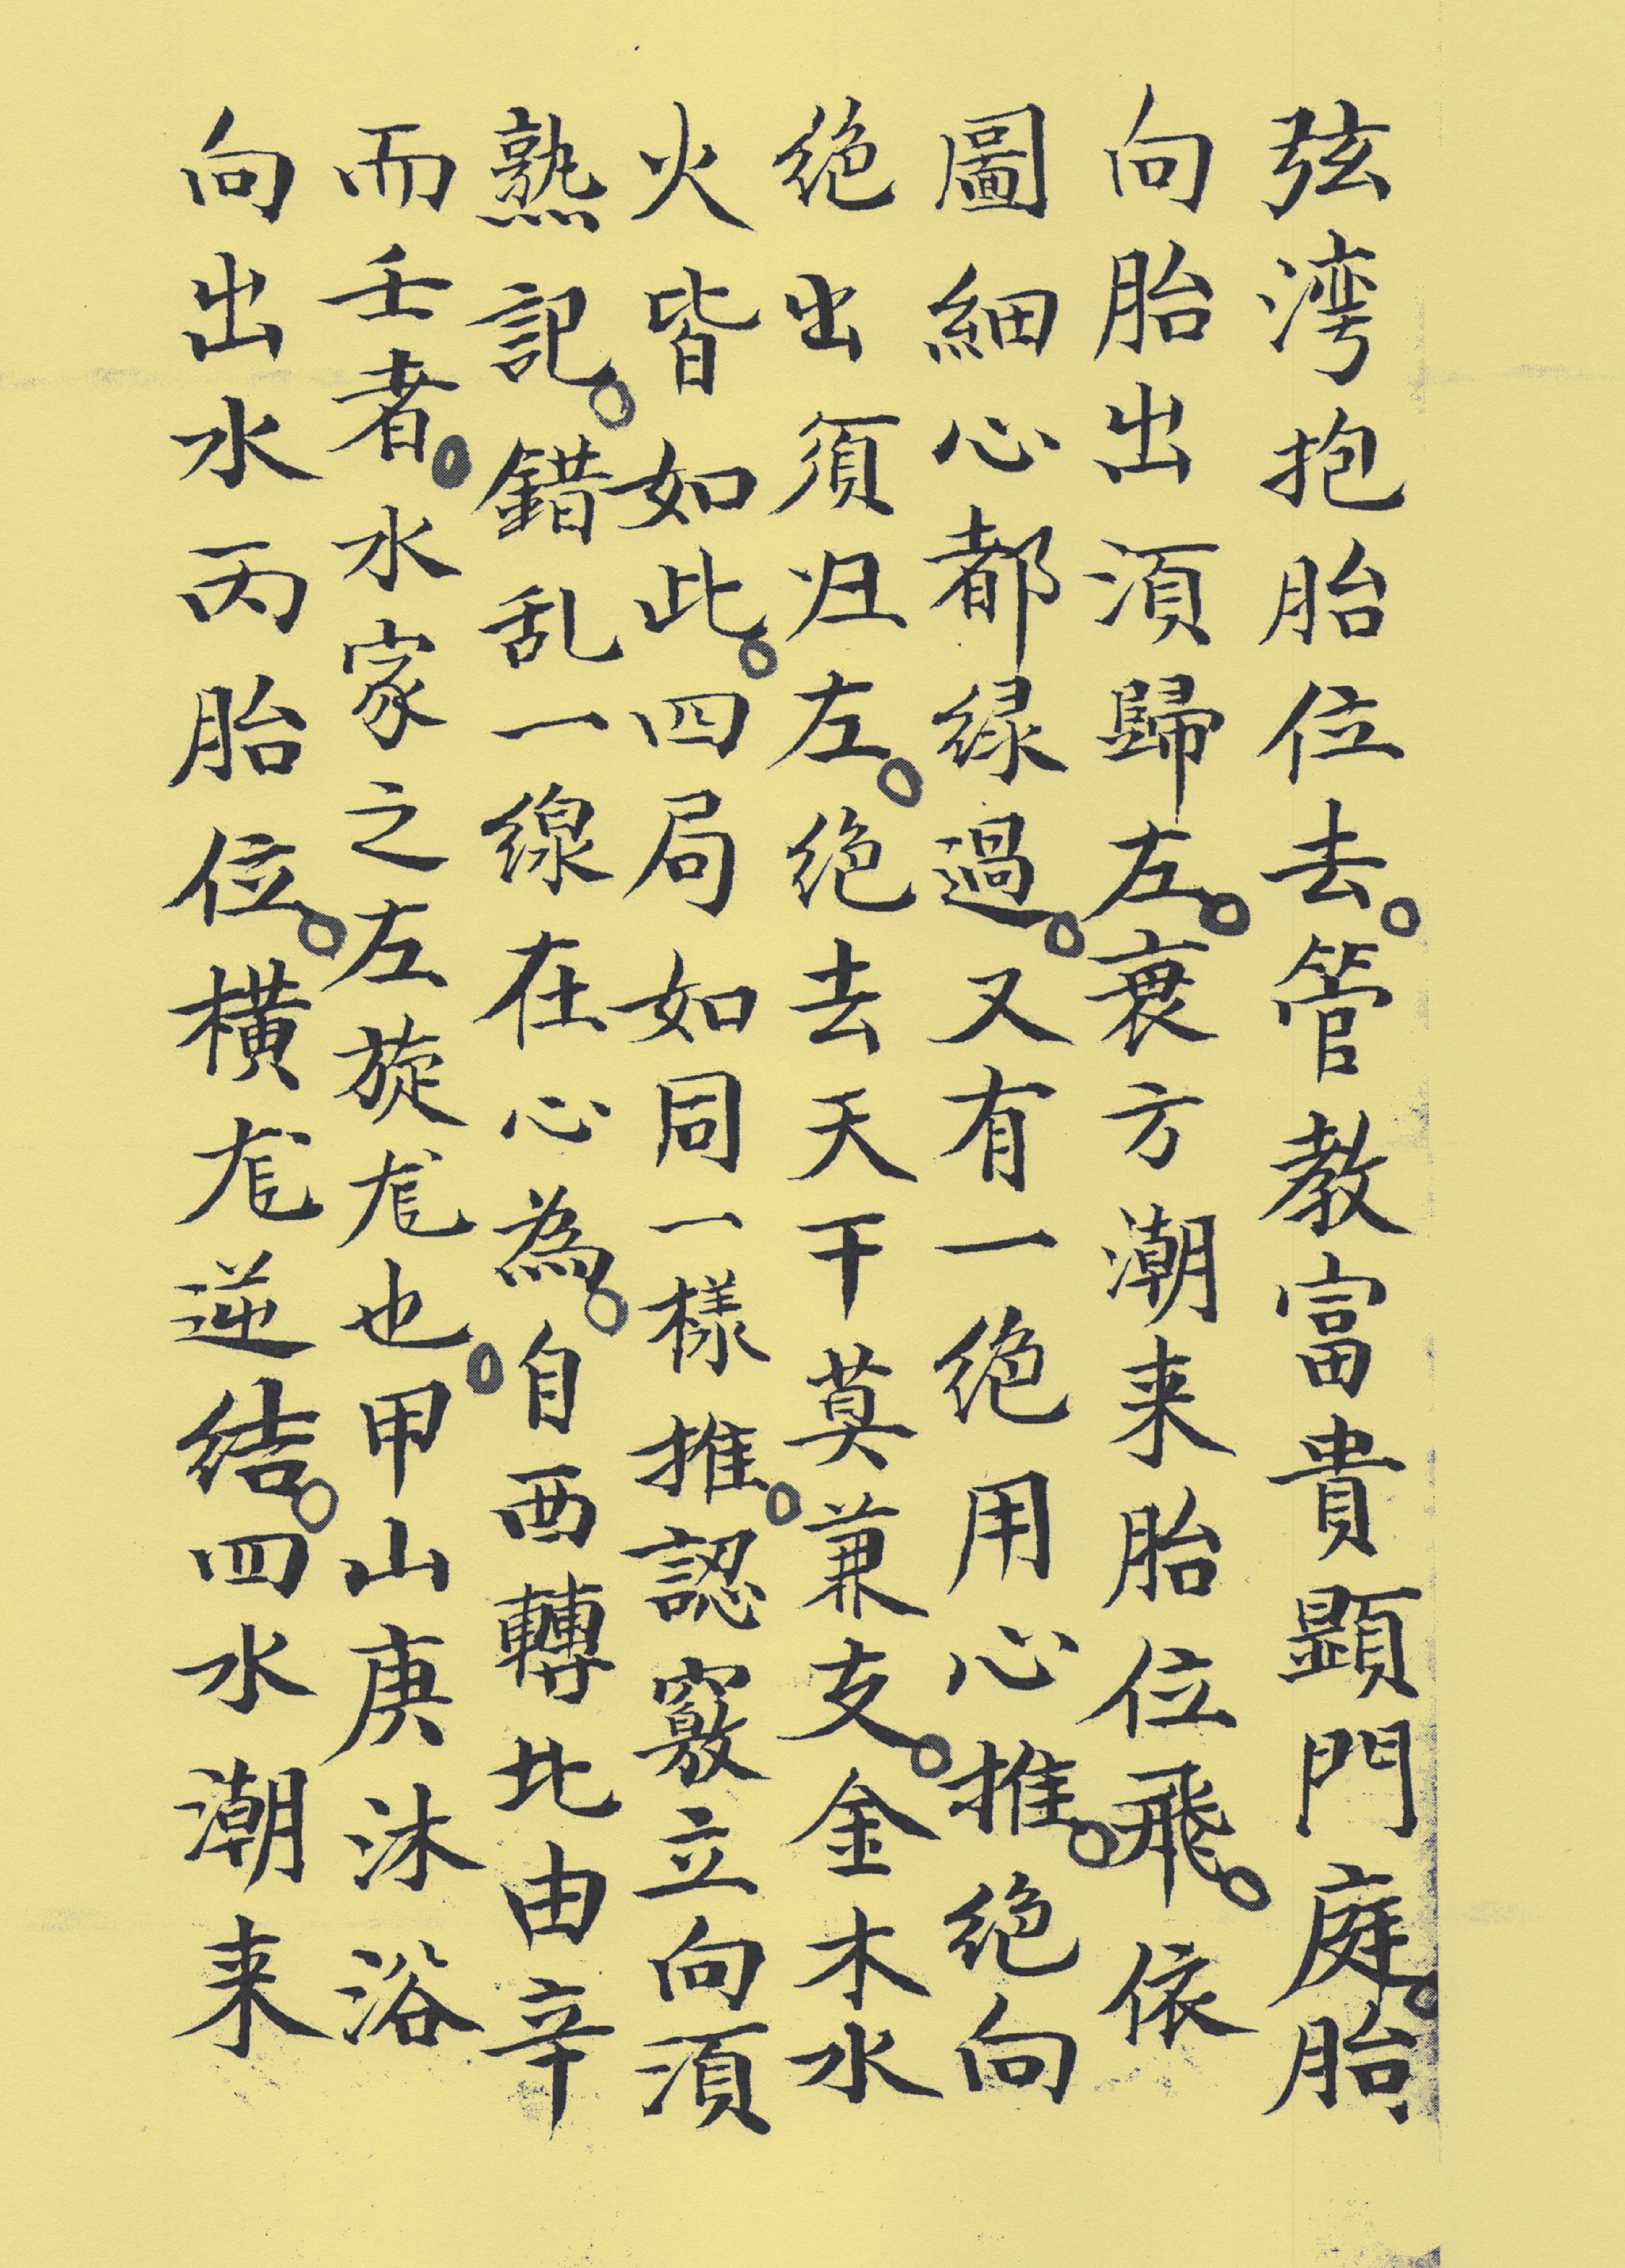 弦湾抱胎位去。管教富貴顕門庭。胎
向胎出湏歸左。衰方潮来胎位飛。依
圖細心都緑過。又有一绝用心推。绝向
绝出須归左。绝去天干莫兼支。金木水
火皆如此。四局如同一樣推。認竅立向湏
熟記。錯乱一線在心為。自西轉北由辛
而壬者。水家之左旋尨也。甲山庚沐浴
向出水丙胎位。横尨逆结。四水潮来